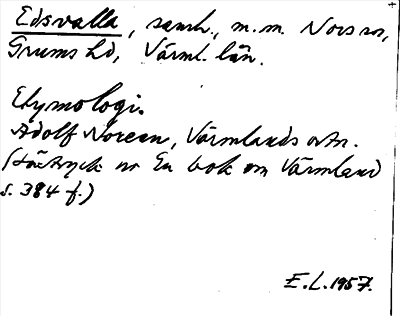 Edsvalla, samh., m.m. Nors sn,
Grums hd, Värml. län.
Etymologi.
Adolf Noreen, Värmlands ortn.
(Särtryck ur En bok om Värmland
s. 384 f.)
E.L. 1957.